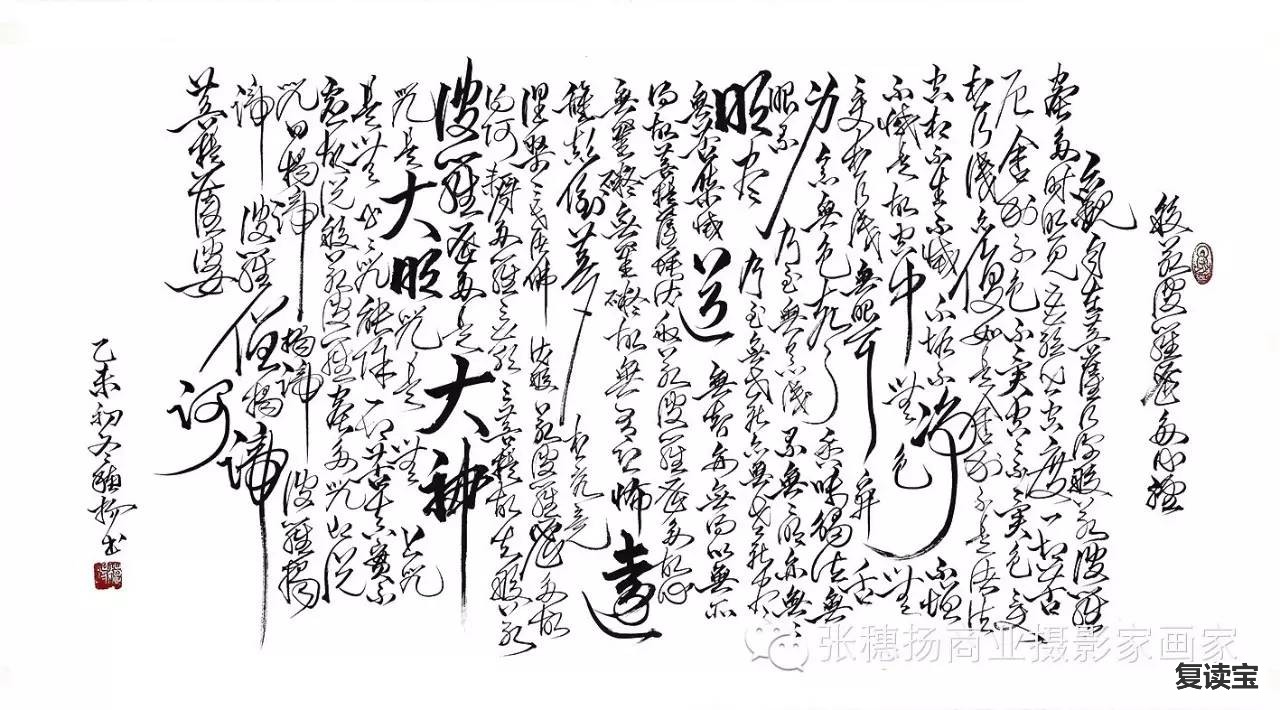 般若波羅蜜多心經
觀自在菩薩行深般若波羅
蜜多時照見五蘊皆空度一切苦
厄舍利子色不異空空不異色受
想行識亦復如是舍利子是諸法
空相不生不滅不垢不淨不增
不滅是故空中無色無
受想行識無眼耳鼻舌
身意無色聲香味觸法無
眼界乃至無意識界無無明亦無無
明盡乃至無老死亦無老死盡
無苦集滅道無智亦無得以無所
得故菩提薩埵依般若波羅蜜多故心
無罣礙無罣礙故無有恐怖遠
離顛倒夢想究竟
涅槃三世諸佛依般若波羅蜜多故
得阿耨多羅三藐三菩提故知般若
波羅蜜多是大神
咒是大明咒是無上咒
是無等等咒能除一切苦真實不
虛故說般若波羅蜜多咒即說
咒曰揭諦揭諦波羅揭
諦波羅僧揭諦
菩提薩婆訶
乙未初冬穗揚書
张穗扬商业摄影家画家
复读宝